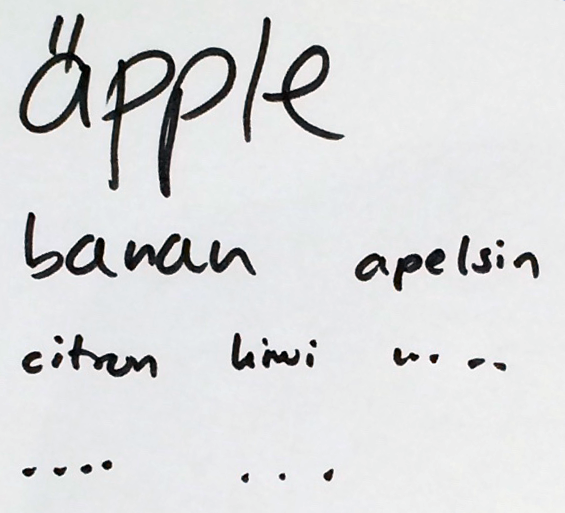 äpple
banan apelsin
citron kiwi
.... ...